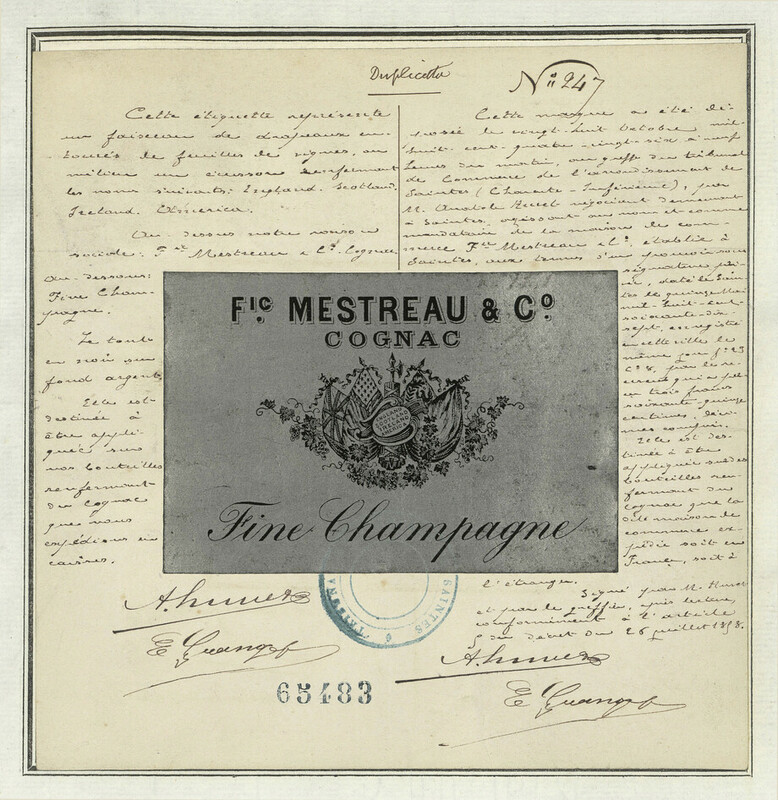 Duplicata
N° 247
Cette étiquette représente
un faisceau de drapeaux en-
tourés de feuilles de vignes, au
milieu un écusson renfermant
les noms suivants: England. Scotland.
Ireland. America.
Au dessus notre raison
sociale: Fic Mestreau & Co. Cognac
Au-dessous:
Fine Cham-
pagne.
Le tout
en noir sur
fond argent.
Elle est
destinée à
être appli-
quée sur
nos bouteilles
renfermant
du Cognac
que nous
expédions en
caisses.
Cette marque a été dé-
posée le vingt-huit Octobre mil-
huit-cent-quatre-vingt-six à neuf
heures du matin, au greffe du tribunal
de Commerce de l'arrondissement de
Saintes (Charente-Inférieure), par
M. Anatole Huret négociant demeurant
à Saintes, agissant au nom et comme
mandataire de la maison de com-
merce Fic Mestreau & Co, établie à
Saintes, aux termes d'un pouvoir sous
signature pri-
vée, daté de Sain-
tes le quinze Mai
mil-huit-cent-
soixante-dix-
sept, enregistré
en cette ville le
même jour fo 23
Co 8, par le re-
ceveur qui a perçu
trois francs
soixante quinze
centimes, déci-
mes compris.
Elle est des-
tinée à être
appliquée sur des
bouteilles ren-
fermant du
cognac que la
dite maison de
commerce ex-
pédie soit en
France, soit à
l'étranger.
Signé par M. Huret
et par le greffier, après lecture,
conformément à l'article
du décret du 26 juillet 1858.
FIC MESTREAU & CO
COGNAC
ENGLAND
SCOTLAND
IRELAND
AMERICA
Fine Champagne
TRIBUNAL
SAINTES
A. Huret
A. Huret
65483